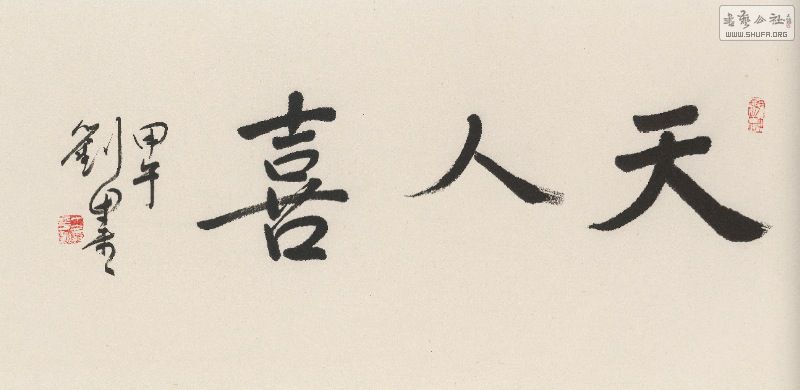 天人喜
甲午
劉墨
書藝公社
WWW.SHUFA.ORG